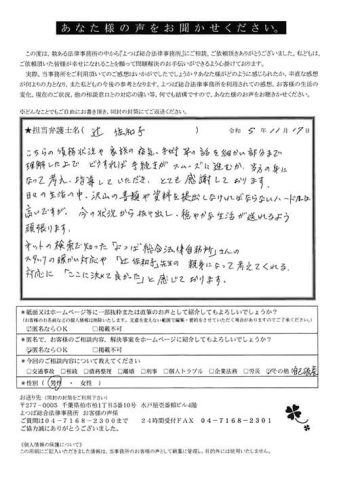 あなた様の声をお聞かせください。
この度は、数ある法律事務所の中から『よつば総合法律事務所』にご相談、ご依頼頂きありがとうございました。私どもは、
ご依頼頂いた皆様が幸せになれることを願って問題解決のお手伝いができるよう心掛けております。
実際、当事務所をご利用頂いてのご感想はいかがでしたでしょうか？あなた様がどのように感じられたか、率直な感想
が何よりの力となり、また私どもの今後の参考となります。よつば総合法律事務所を利用されての感想、お客様の生活の
変化、現在のご状況、他の相談者目との対応の違い等、何でも結構ですので、あなた様のお声をお聴きかせください。
※どんなことでもご自由にお書き頂き、同封の封筒にてご返送ください。
★担当弁護士名（ 辻 佐和子 ） 令和 5 年 11 月 17 日
こちらの債務状況や家族の
理解した上で どうすれば手続きがスムーズに進むか、当方の身に
なって考え、指導していただき、とても感謝しております。
日々の生活の中、沢山の書類や資料を提出しなければならないハードルは
高いですが、今の状況から抜け出し、穏やかな生活が送れるよう
頑張ります。
ネットの検索で知った「よつば総合法律事務所」さんの
スタッフの暖かい対応や「辻佐和子」先生の 親身になって考えてくれる
対応に「ここに決めて良かった」と感じております。
＊紙面又はホームページ等に一部抜粋または直筆のお声として紹介してもよろしいでしょうか？
☑匿名ならOK □掲載不可
＊匿名で、お客様のご相談内容、解決事案をホームページに紹介してもよろしいでしょうか？
☑匿名ならOK □掲載不可
＊今回のご相談内容について教えてください
□交通事故 □相続 □債務整理 □離婚 □刑事 □個人トラブル □企業法務 □労災 ☑その他
＊性別（ 男性 ・ 女性 ）
お送り先（同封の封筒をご利用下さい）
〒277-0005 千葉県柏市柏1丁目5番10号 水戸屋壱番館ビル4階
よつば総合法律事務所 お客様の声係
ご質問は04-7168-2300まで 24時間受付FAX 04-7168-2301
ご協力誠にありがとうございました。
《個人情報の保護について》
この用紙にご記入いただきました情報は、当事務所のお客様の声として厳重に管理し、目的外には使用いたしません。